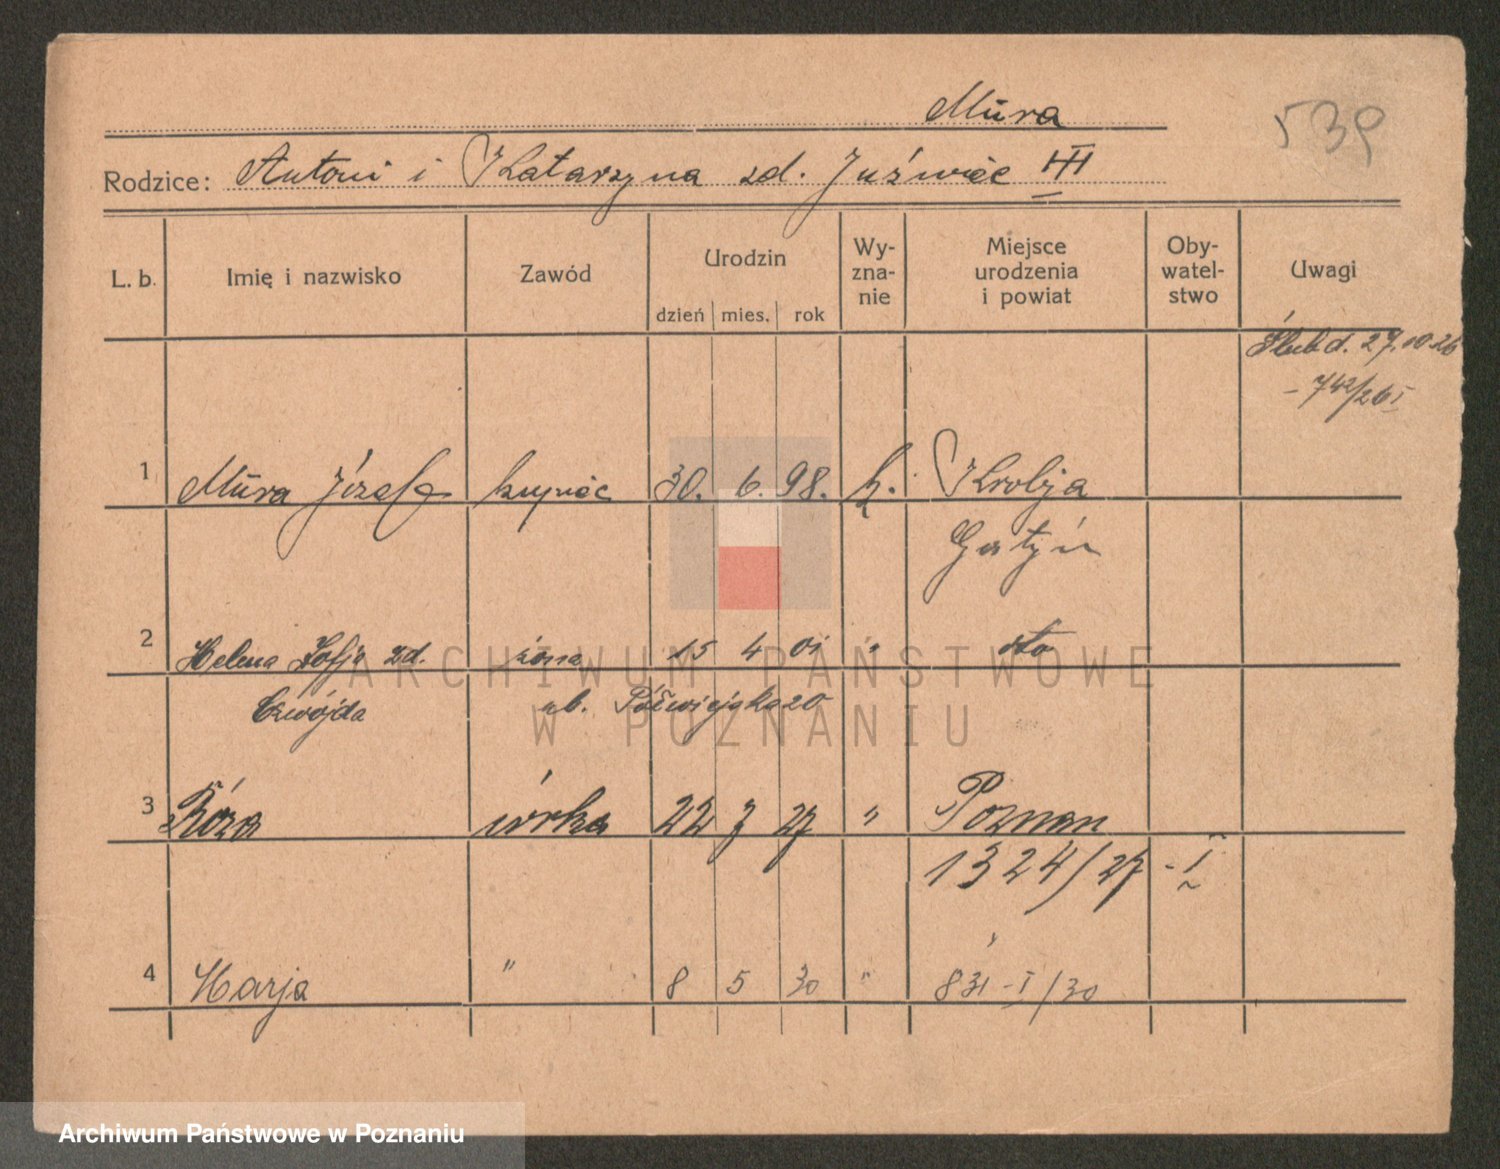 Mūra
539
Rodzice: Antoni i Katarzyna zd. Juźwiec III
L. b.
Imię i nazwisko
Zawód
Urodzin
dzień mies. rok
Wy-
zna-
nie
Miejsce
urodzenia
i powiat
Oby-
watel-
stwo
Uwagi
Ślub d. 27.10.26
- 742/26 I
1 Mūra Józef kupiec 30. 6. 98. k. Krobja
Gostyń
2 Helena Zofja zd. żona 15 4 01 " dto
Czwójda ul. Półwiejska 20
3 Róża córka 22 7 27 " Poznań
1324/27 - I
4 Marja " 8 5 30 " 831 - I/30
ARCHIWUM PAŃSTWOWE
W POZNANIU
Archiwum Państwowe w Poznaniu